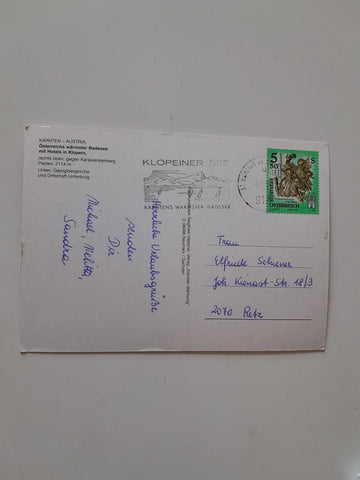 KÄRNTEN - AUSTRIA
Österreichs wärmster Badesee
mit Hotels in Klopein,
rechts oben, gegen Karawankenberg
Petzen, 2114 m -
Unten: Georgibergkirche
und Ortschaft Unterburg
Herrliche Urlaubsgrüße
senden
Dir
Michael, Melitta,
Sandra
KLOPEINER SEE
KÄRNTENS WÄRMSTER BADESEE
5
50
S
REPUBLIK
ÖSTERREICH
Frau
Elfriede Schiener
Joh. Kienast-Str. 18/3
2070 Retz